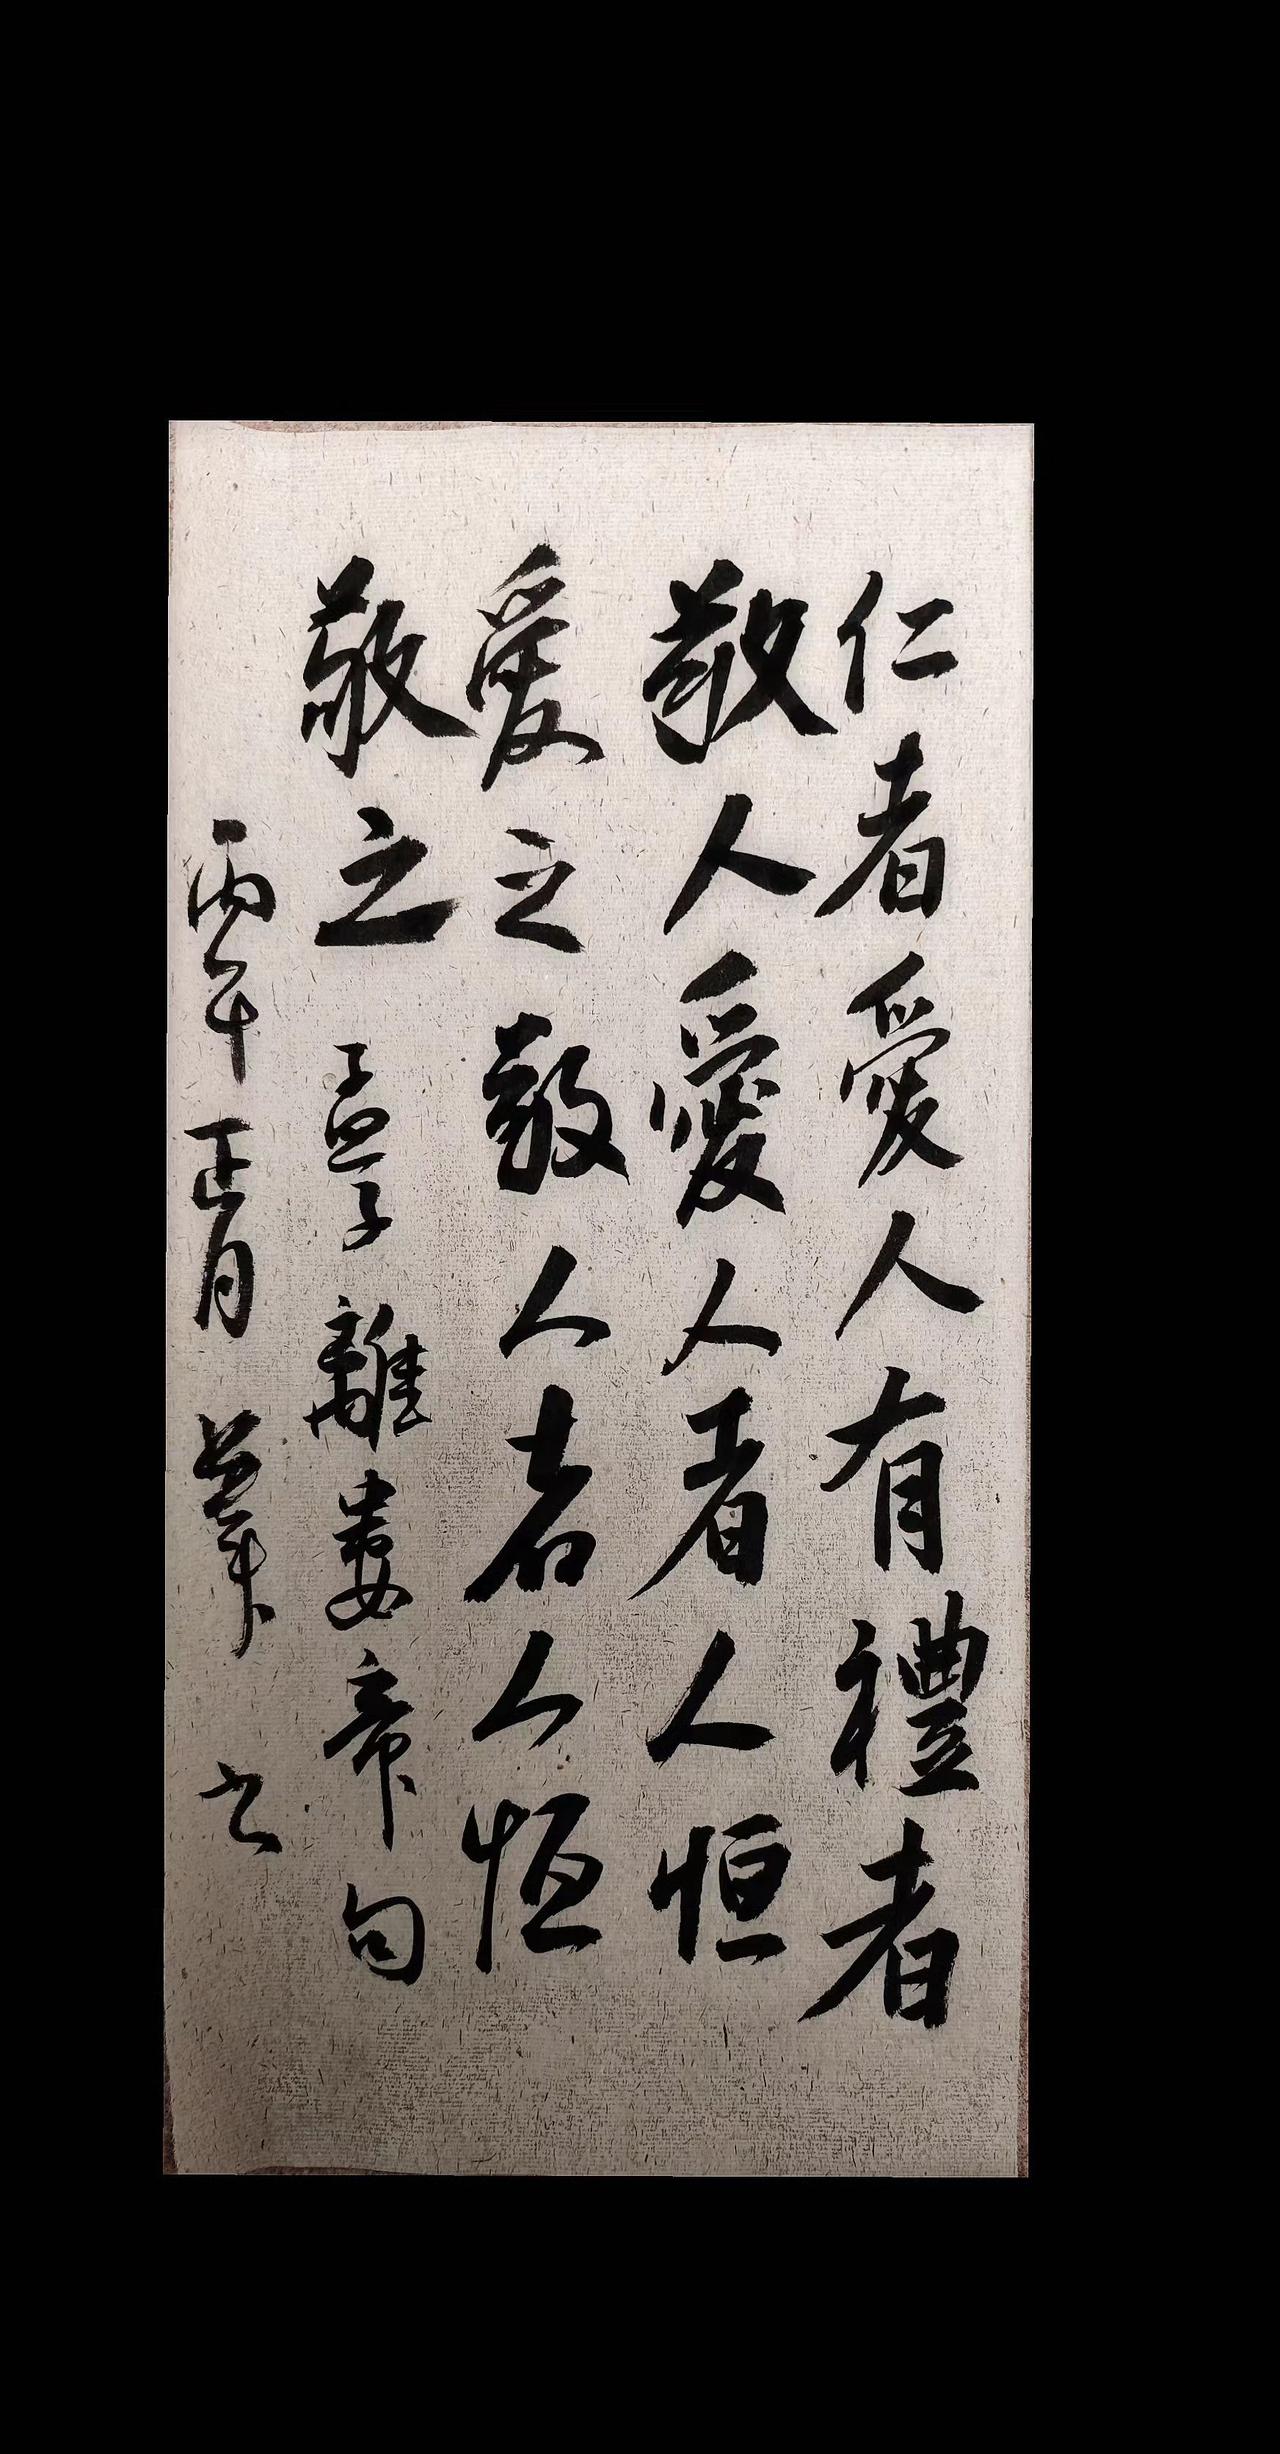 仁者愛人有禮者
敬人愛人者人恒
愛之敬人者人恒
敬之 孟子離婁章句
丙午正月 筆之